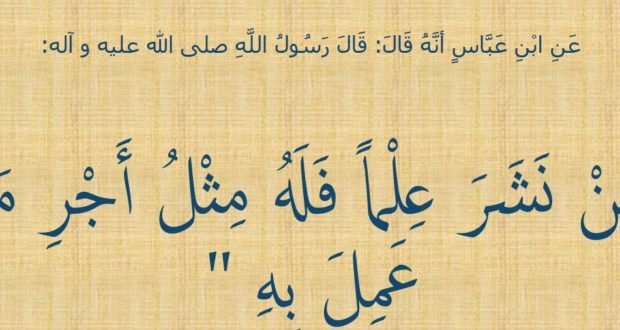 عَنِ ابْنِ عَبَّاسٍ أنَّهُ قَالَ: قَالَ رَسُولُ اللَّهِ صلى الله عليه و آله:
نَشَرَ عِلْماً فَلَهُ مِثْلُ أَجْرِ
عَمِلَ بِهِ "